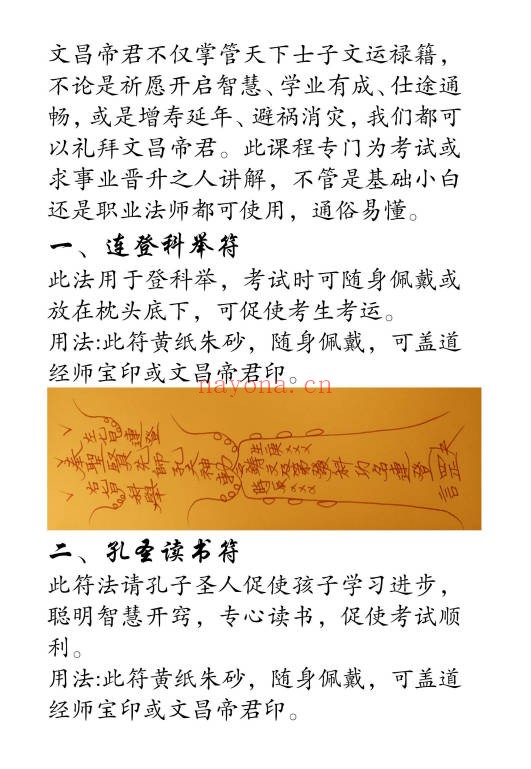 文昌帝君不仅掌管天下士子文运禄籍，
不论是祈愿开启智慧、学业有成、仕途通
畅，或是增寿延年、避祸消灾，我们都可
以礼拜文昌帝君。此课程专门为考试或
求事业晋升之人讲解，不管是基础小白
还是职业法师都可使用，通俗易懂。
一、连登科举符
此法用于登科举，考试时可随身佩戴或
放在枕头底下，可促使考生考运。
用法:此符黄纸朱砂，随身佩戴，可盖道
经师宝印或文昌帝君印。
nayona.cn
二、孔圣读书符
此符法请孔子圣人促使孩子学习进步，
聪明智慧开窍，专心读书，促使考试顺
利。
用法:此符黄纸朱砂，随身佩戴，可盖道
经师宝印或文昌帝君印。